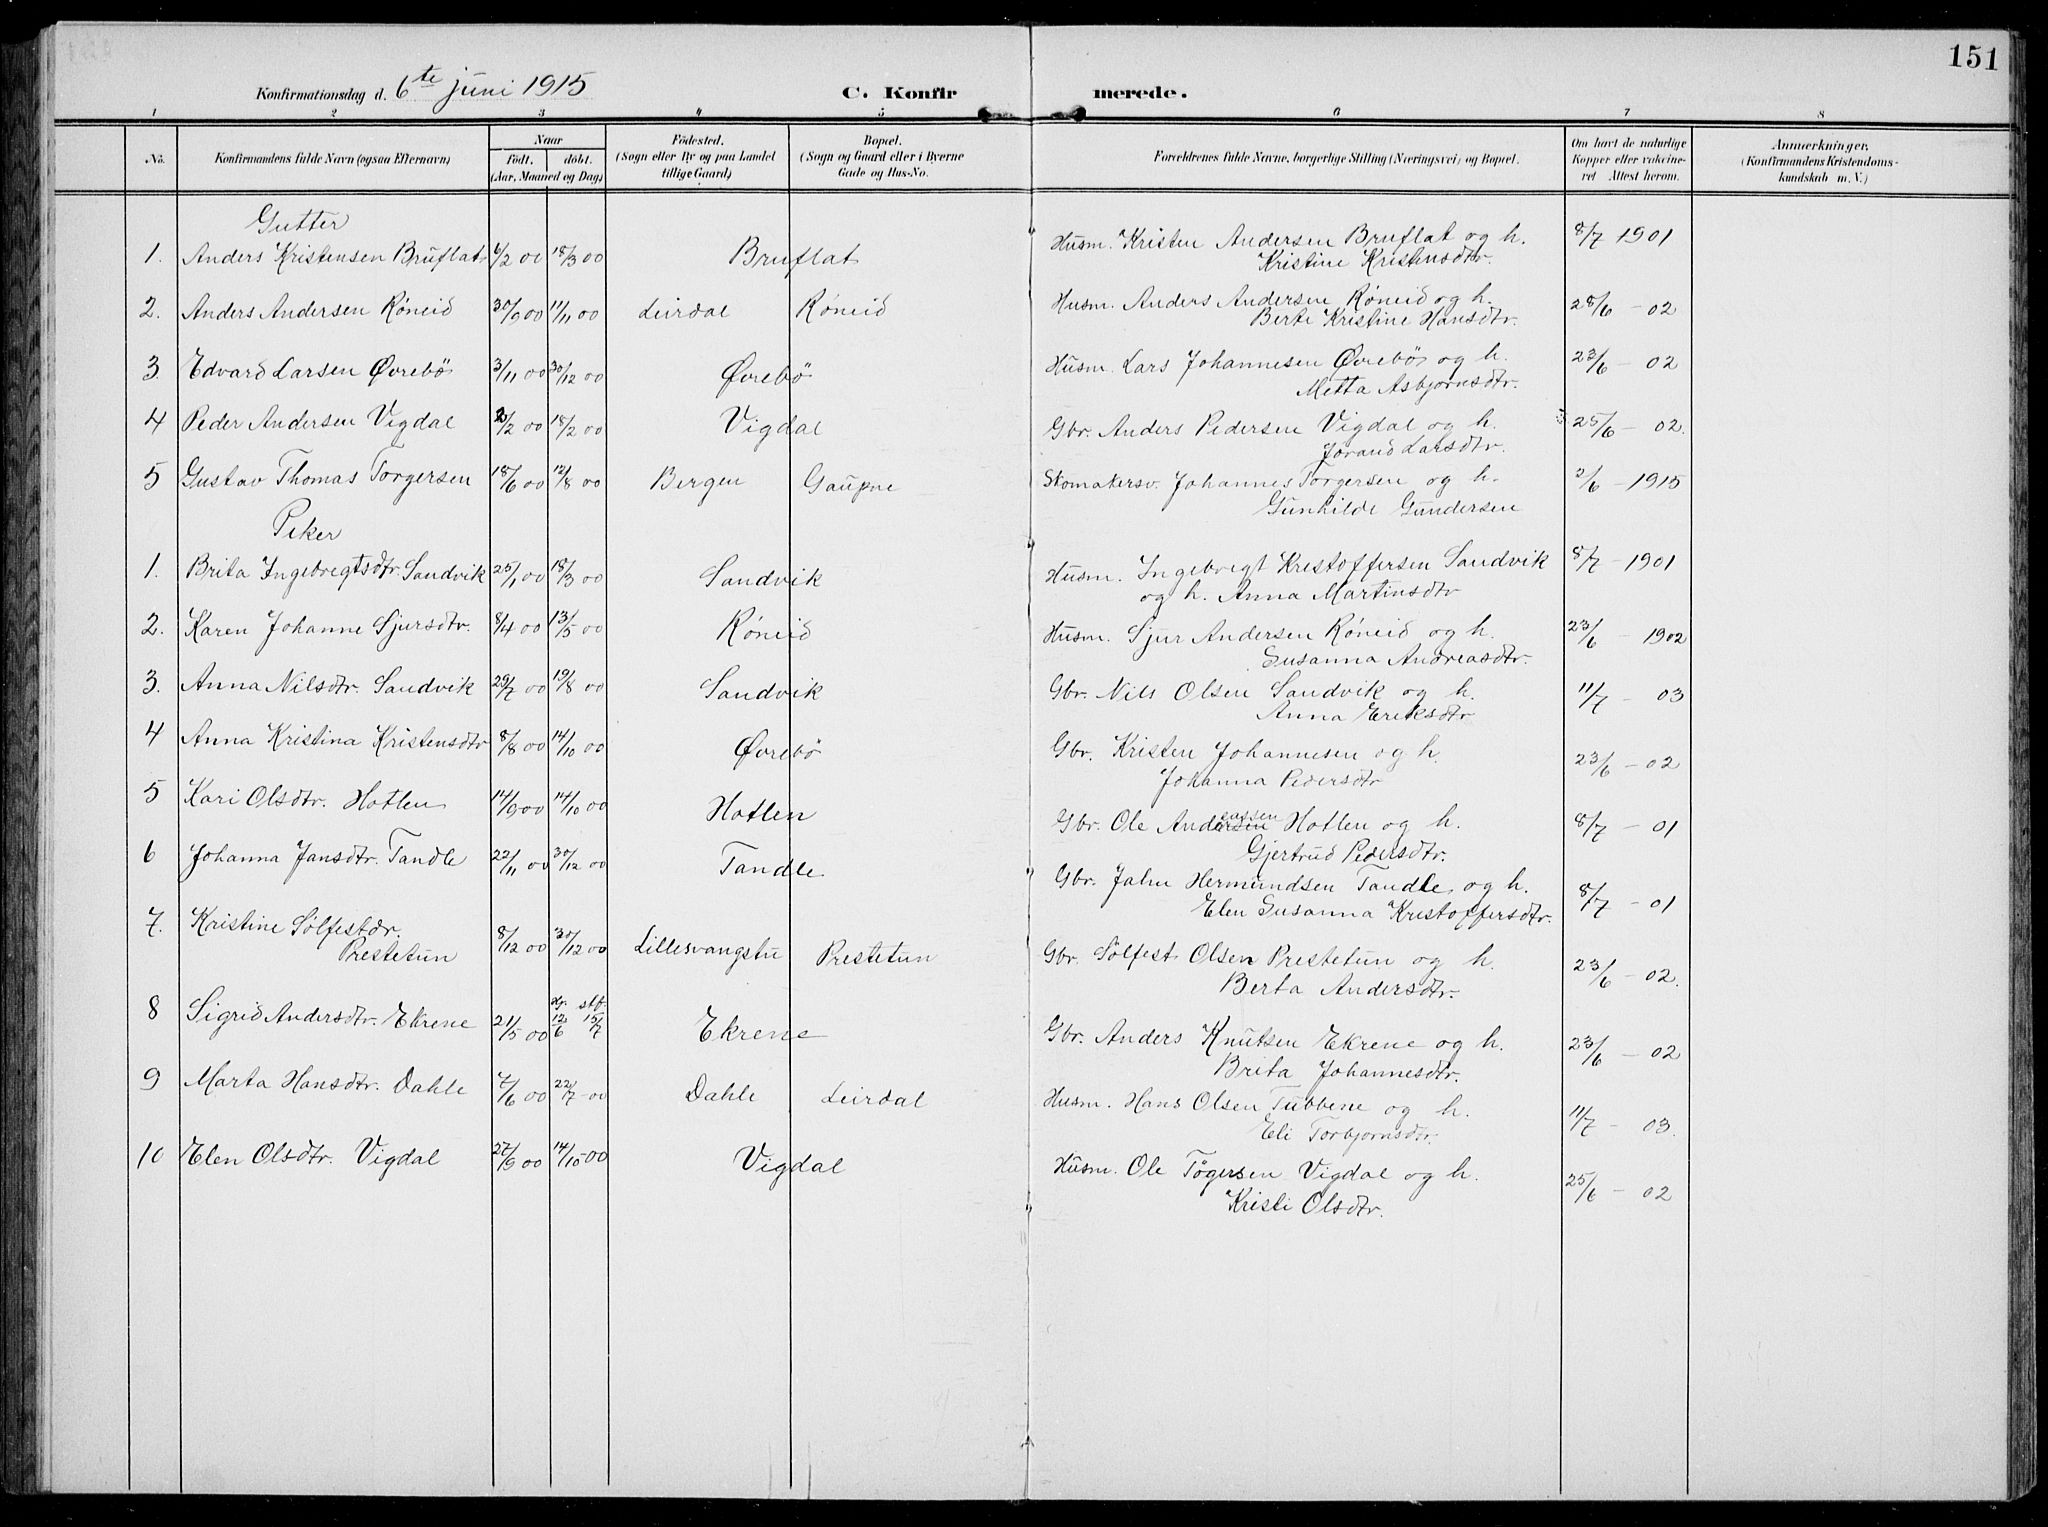 151
Konfirmationsdag d. 6te juni 1915 C. Konfirmerede.
1 2 3 4 5 6 7 8
No. Konfirmandens fulde Navn (ogsaa Efternavn) Naar født. døbt. (Aar, Maaned og Dag) Fødested. (Sogn eller By og paa Landet tillige Gaard) Bopæl. (Sogn og Gaard eller i Byerne Gade og Hus-No. Forældrenes fulde Navne, borgerlige Stilling (Næringsvei) og Bopæl. Om havt de naturlige Kopper eller vakcineret Attest herom. Anmærkninger. (Konfirmandens Kristendomskundskab m. V.)
Gutter
1. Anders Kristensen Bruflat 6/2 00 18/3 00 Bruflat Husm. Kristen Andersen Bruflat og h. 8/7 1901
Kristine Kristensdtr.
2. Anders Andersen Röneid 30/9 00 11/11 00 Leirdal Röneid Husm. Anders Andersen Röneid og h. 28/6 - 02
Berte Kristine Hansdtr.
3. Edvard Larsen Øvrebö 3/11 00 30/12 00 Øvrebö Husm. Lars Johannesen Øvrebö og h. 23/6 - 02
Metta Asbjörnsdtr.
4 Peder Andersen Vigdal /2 00 18/2 00 Vigdal Gbr. Anders Pedersen Vigdal og h. 25/6 - 02.
Jorand Larsdtr.
5 Gustav Thomas Torgersen 18/6 00 12/8 00 Bergen Gaupne Skomakersv. Johannes Torgersen og h. 2/6 - 1915
Gunhilde Gundersen
Piker
1. Brita Ingebregtsdtr. Sandvik 25/1 00 18/3 00 Sandvik Husm. Ingebregt Kristoffersen Sandvik 8/7 - 1901
og h. Anna Martinsdtr
2. Karen Johanne Sjursdtr. 8/4 00 13/5 00 Röneid Husm. Sjur Andersen Röneid og h. 23/6 - 1902
Susanna Andreasdtr.
3. Anna Nilsdtr. Sandvik 29/7 00 19/8 00 Sandvik Gbr. Nils Olsen Sandvik og h. 11/7 - 03
Anna Eriksdtr
4 Anna Kristina Kristensdtr 8/8 00 14/10 00 Øvrebö Gbr. Kristen Johannesen og h. 23/6 - 02
Johanna Pedersdtr
5 Kari Olsdtr. Hatlen 14/9 00 14/10 00 Hatlen Gbr. Ole Andersen Hatlen og h. 8/7 - 01
Gjertrud Pedersdtr.
6 Johanna Jansdtr. Tandle 22/11 00 30/12 00 Tandle Gbr. Jahn Hermundsen Tandle og h. 8/7 - 01
Elen Susanna Kristoffersdtr.
7. Kristine Sölfestdr. Prestetun 8/12 00 30/12 00 Lillesvangstu Prestetun Gbr. Sölfest Olsen Prestetun og h. 23/6 - 02.
Berta Andersdtr.
8 Sigrid Andersdtr. Ekrene 21/5 00 12/6 stf. 15/7 Ekrene Gbr. Anders Knutsen Ekrene og h. 23/6 - 02
Brita Johannesdtr.
9 Marta Hansdtr. Dahle 7/6 00 22/7 - 00 Dahle Leirdal Husm. Hans Olsen Tubbene og h. 11/7 - 03.
Eli Torbjörnsdtr.
10 Elen Olsdtr. Vigdal 27/9 00 14/10-00 Vigdal Husm. Ole Tögersen Vigdal og h. 25/6 - 02
Kristi Olsdtr.